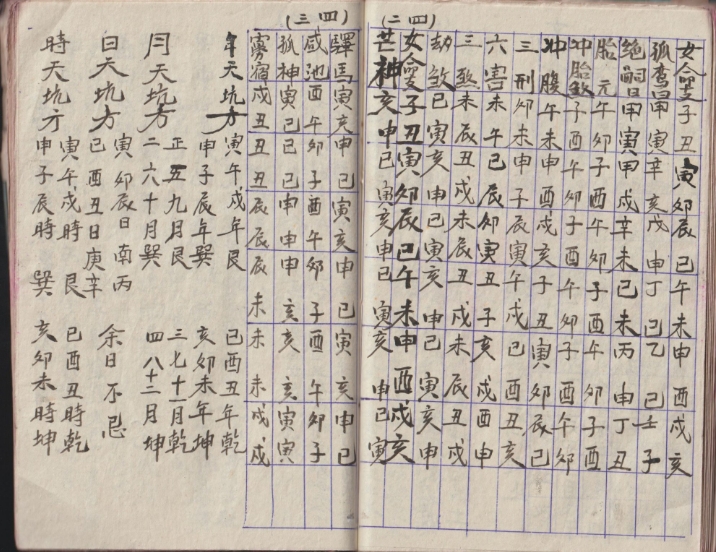 (二四)
女子丑寅卯辰巳午未申酉戌亥
孤日甲寅辛亥戊申丁巳乙巳壬子
绝嗣日甲寅甲戌辛未己未丙申丁丑
胎元午卯子酉午卯子酉午卯子酉
冲胎煞子酉午卯子酉午卯子酉午卯
冲腹午未申酉戌亥子丑寅卯辰巳
三刑卯未申子辰寅午戌巳酉丑亥
六害未午巳辰卯寅丑子亥戌酉申
三煞未辰丑戌未辰丑戌未辰丑戌
劫煞巳寅亥申巳寅亥申巳寅亥申
女子丑寅卯辰巳午未申酉戌亥
芒神亥申巳寅亥申巳寅亥申巳寅
(三四)
驛馬寅亥申巳寅亥申巳寅亥申巳
咸池酉午卯子酉午卯子酉午卯子
孤神寅巳巳巳申申申亥亥亥寅寅
寡宿戌丑丑丑辰辰辰未未未戌戌
年天坑方
寅午戌年艮 巳酉丑年乾
申子辰年巽 亥卯未年坤
月天坑方
正五九月艮 三七十一月乾
二六十月巽 四八十二月坤
日天坑方
寅卯辰日南丙
巳酉丑日庚辛 余日不忌
時天坑方
寅午戌時艮 巳酉丑時乾
申子辰時巽 亥卯未時坤